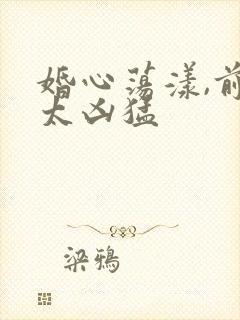 婚心荡漾,前
太凶猛
梁鸦